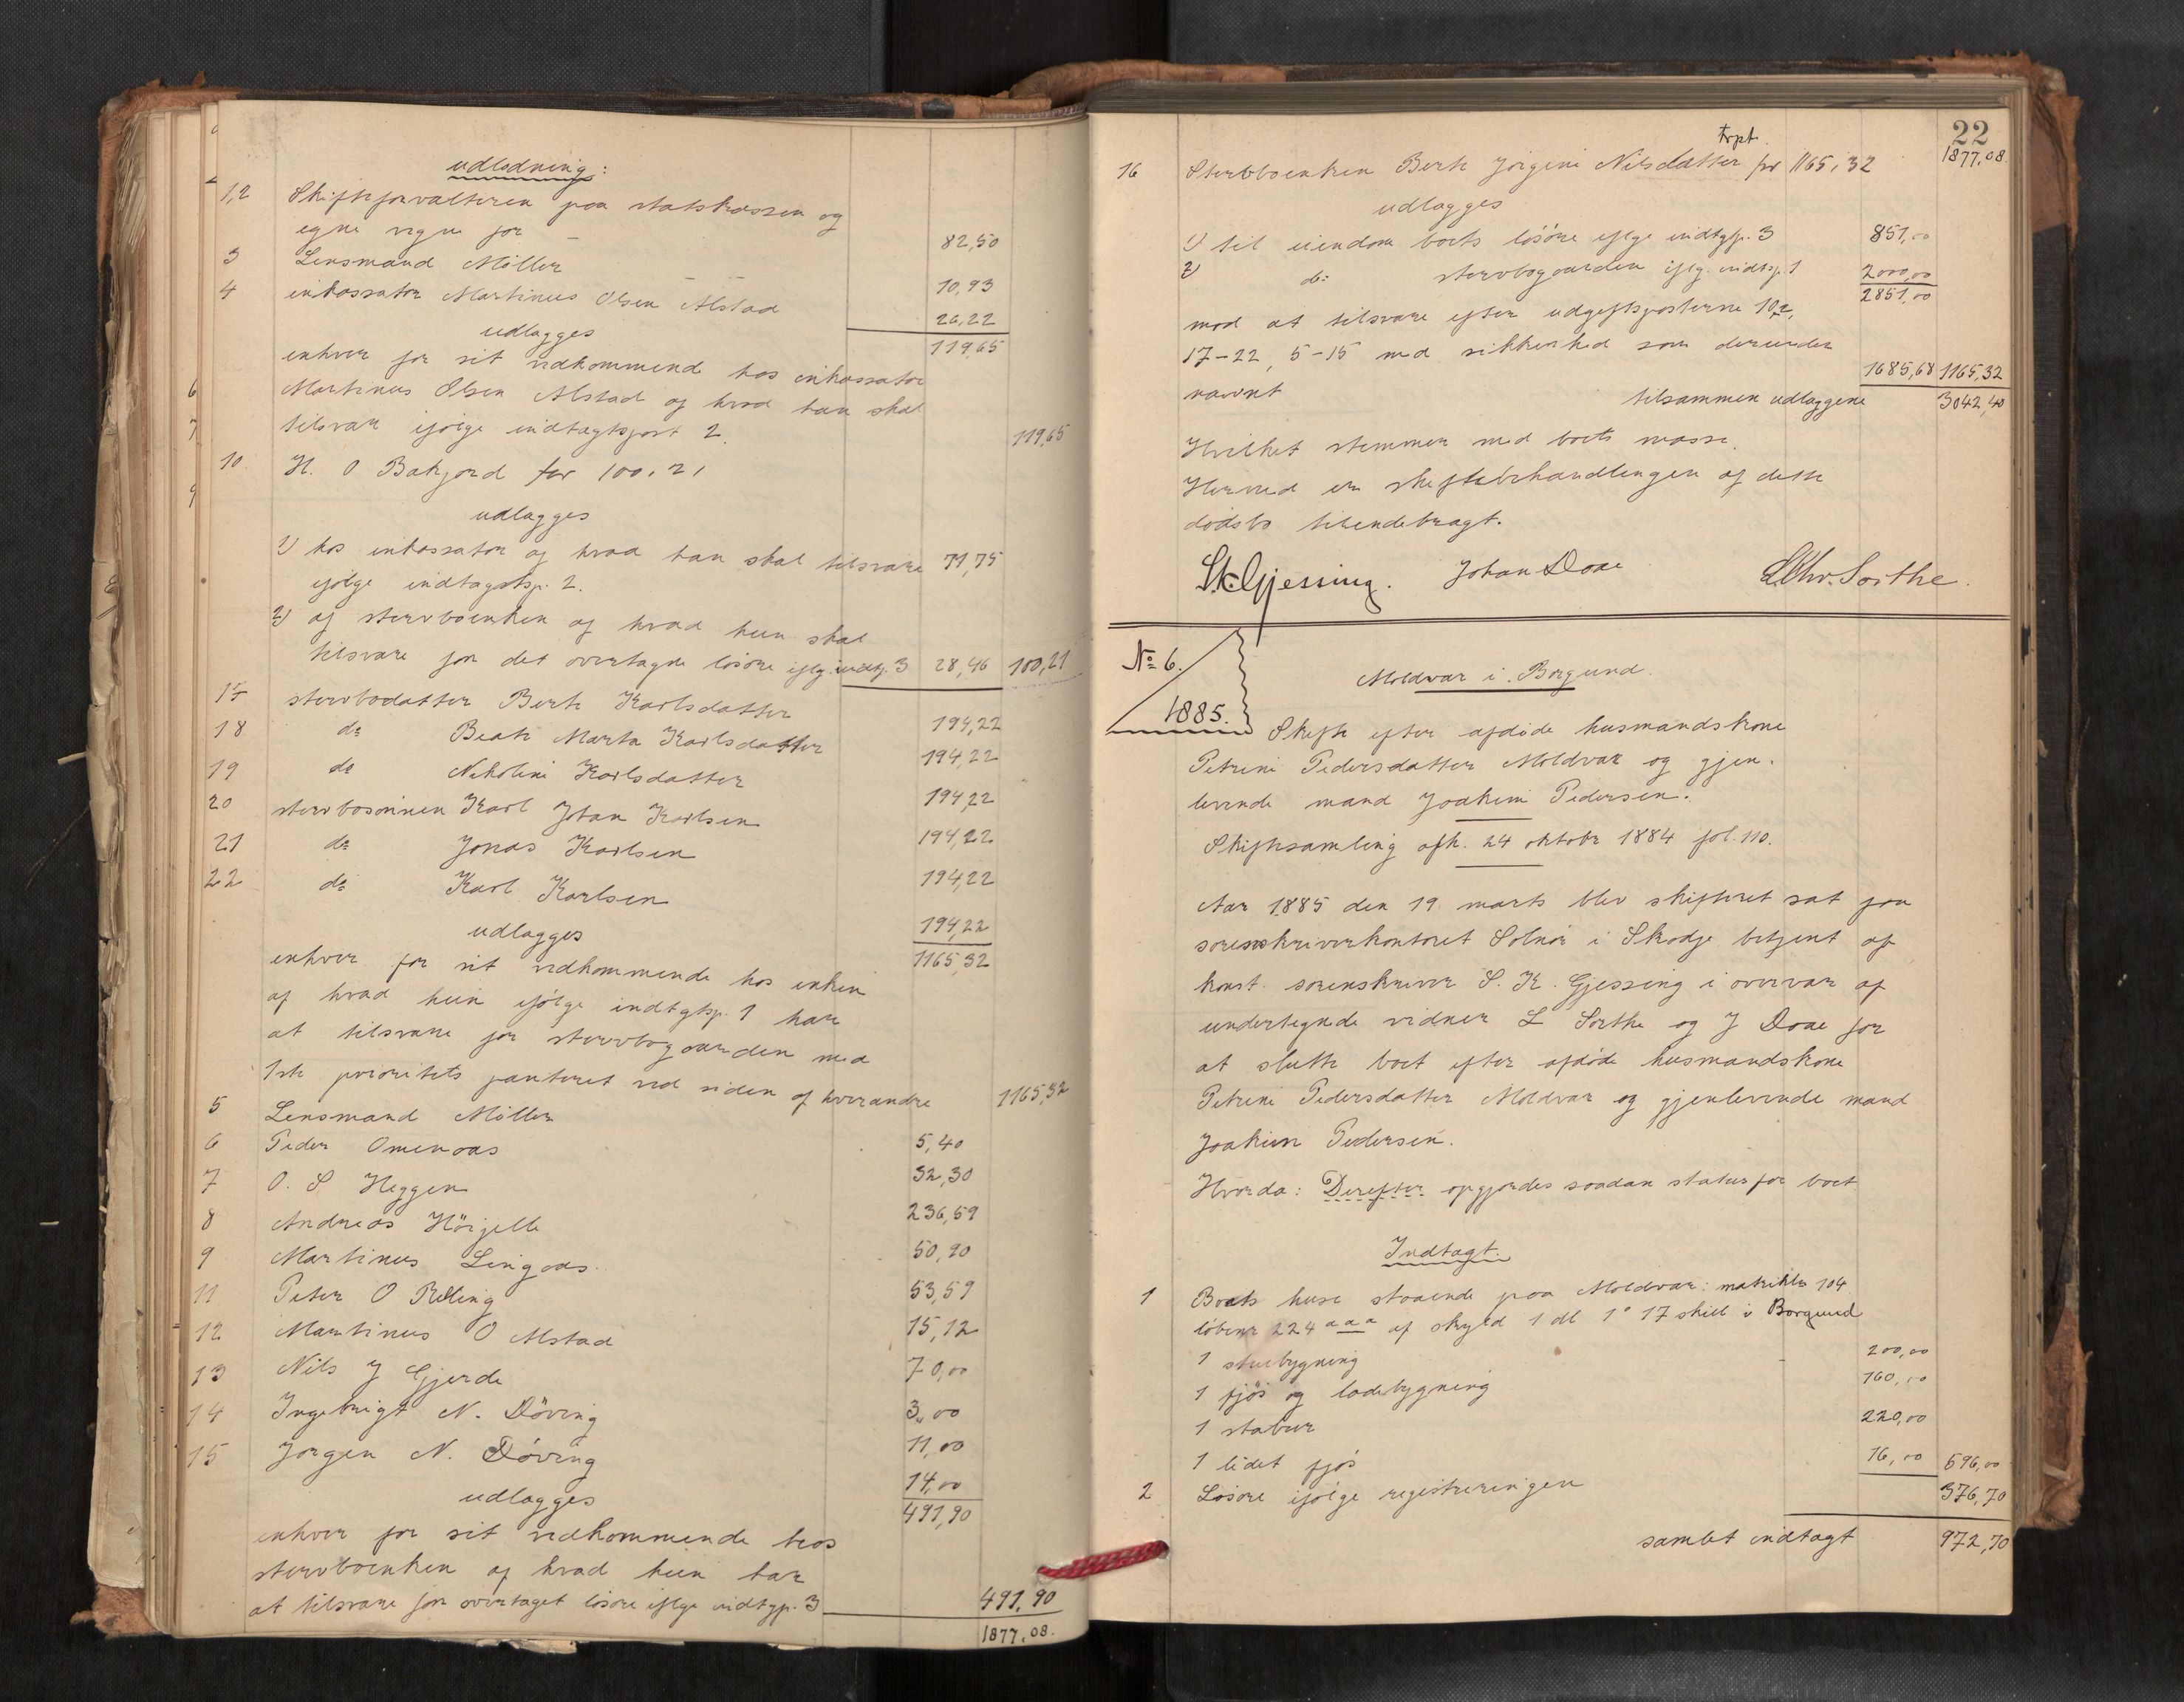 udlodning:
1,2 Skifteforvalteren paa statskassen og
egne vegne for 82,50
3 Lensmand Möller 10,93
4 inkassator Martinus Olsen Alstad 26,22
udlægges 119,65
enhver for sit vedkommende hos inkassator
Martinus Olsen Alstad af hvad han skal
tilsvare ifølge indtægtspost 2. 119,65
10 H. O Bakfjord for 100,21
udlægges
1) hos inkassator af hvad han skal tilsvare 71,75
ifølge indtægtsp. 2.
2) af stervboenken af hvad hun skal
tilsvare for det overtagne løsøre iflg. indtg. 3 28,46 100,21
17 stervbodatter Berte Karlsdatter 194,22
18 do Beate Marta Karlsdatter 194,22
19 do Nikoline Karlsdatter 194,22
20 stervbosønnen Karl Johan Karlsen 194,22
21 do Jonas Karlsen 194,22
22 do Karl Karlsen 194,22
udlægges 1165,32
enhver for sit vedkommende hos enken
af hvad hun ifølge indtgtsp. 1 har
at tilsvare for stervbogaarden med
1ste prioritets panteret ved siden af hverandre 1165,32
5 Lensmand Möller 5,40
6 Peder Omenaas 32,30
7 O. S Heggen 236,59
8 Andreas Hörjelle 50,90
9 Martinus Lingaas 53,59
11 Peter O Relling 15,12
12 Martinus O Alstad 70,00
13 Nils J Gjerde 3,00
14 Ingebrigt N. Döving 11,00
15 Jørgen N. Döving 14,00
udlægges 491,90
enhver for sit vedkommende hos
stervboenken af hvad hun har
at tilsvare for overtaget løsøre iflge indtgp. 3 491,90
1877,08.
22
Trpt. 1877,08
16 Stervboenken Berte Jørgine Nilsdatter for 1165,32
udlægges
1) til eiendom boets løsøre iflge indtgp. 3 851,00
2) do stervbogaarden iflg. indtg. 1 2000,00
2851,00
mod at tilsvare efter udgiftsposterne 10,2,
17-22, 5-15 med sikkerhed som derunder
nævnt 1685,68 1165,32
tilsammen udlæggene 3042,40
Hvilket stemmer med boets masse.
Hermed er skiftebehandlingen af dette
dødsbo tilendebragt.
S.K. Gjessing. Johan Doae L Chr. Sorthe.
No 6.
1885.
Moldvær i Borgund.
Skifte efter afdøde husmandskone
Petrine Pedersdatter Moldvær og gjen-
levende mand Joakim Pedersen.
Skiftesamling afh. 24 oktobr 1884 fol. 110.
Aar 1885 den 19 marts blev skifteret sat paa
sorenskriverkontoret Solnør i Skodje betjent af
konst. sorenskriver S. K. Gjessing i overvær af
undertegnede vidner L Sorthe og J Doae for
at slutte boet efter afdøde husmandskone
Petrine Pedersdatter Moldvær og gjenlevende mand
Joakim Pedersen.
Hvorda: Derefter opgjordes saadan status for boet
Indtægt.
1 Boets huse staaende paa Moldvær: matrikler 104
løbenr 224 a a a af skyld 1 dl 1 o 17 skill i Borgund
1 stuebygning 200,00
1 fjøs og ladebygning 160,00
1 stabur 220,00
1 lidet fjøs 16,00 596,00
2 Løsøre ifølge registreringen 376,70
samlet indtægt 972,70